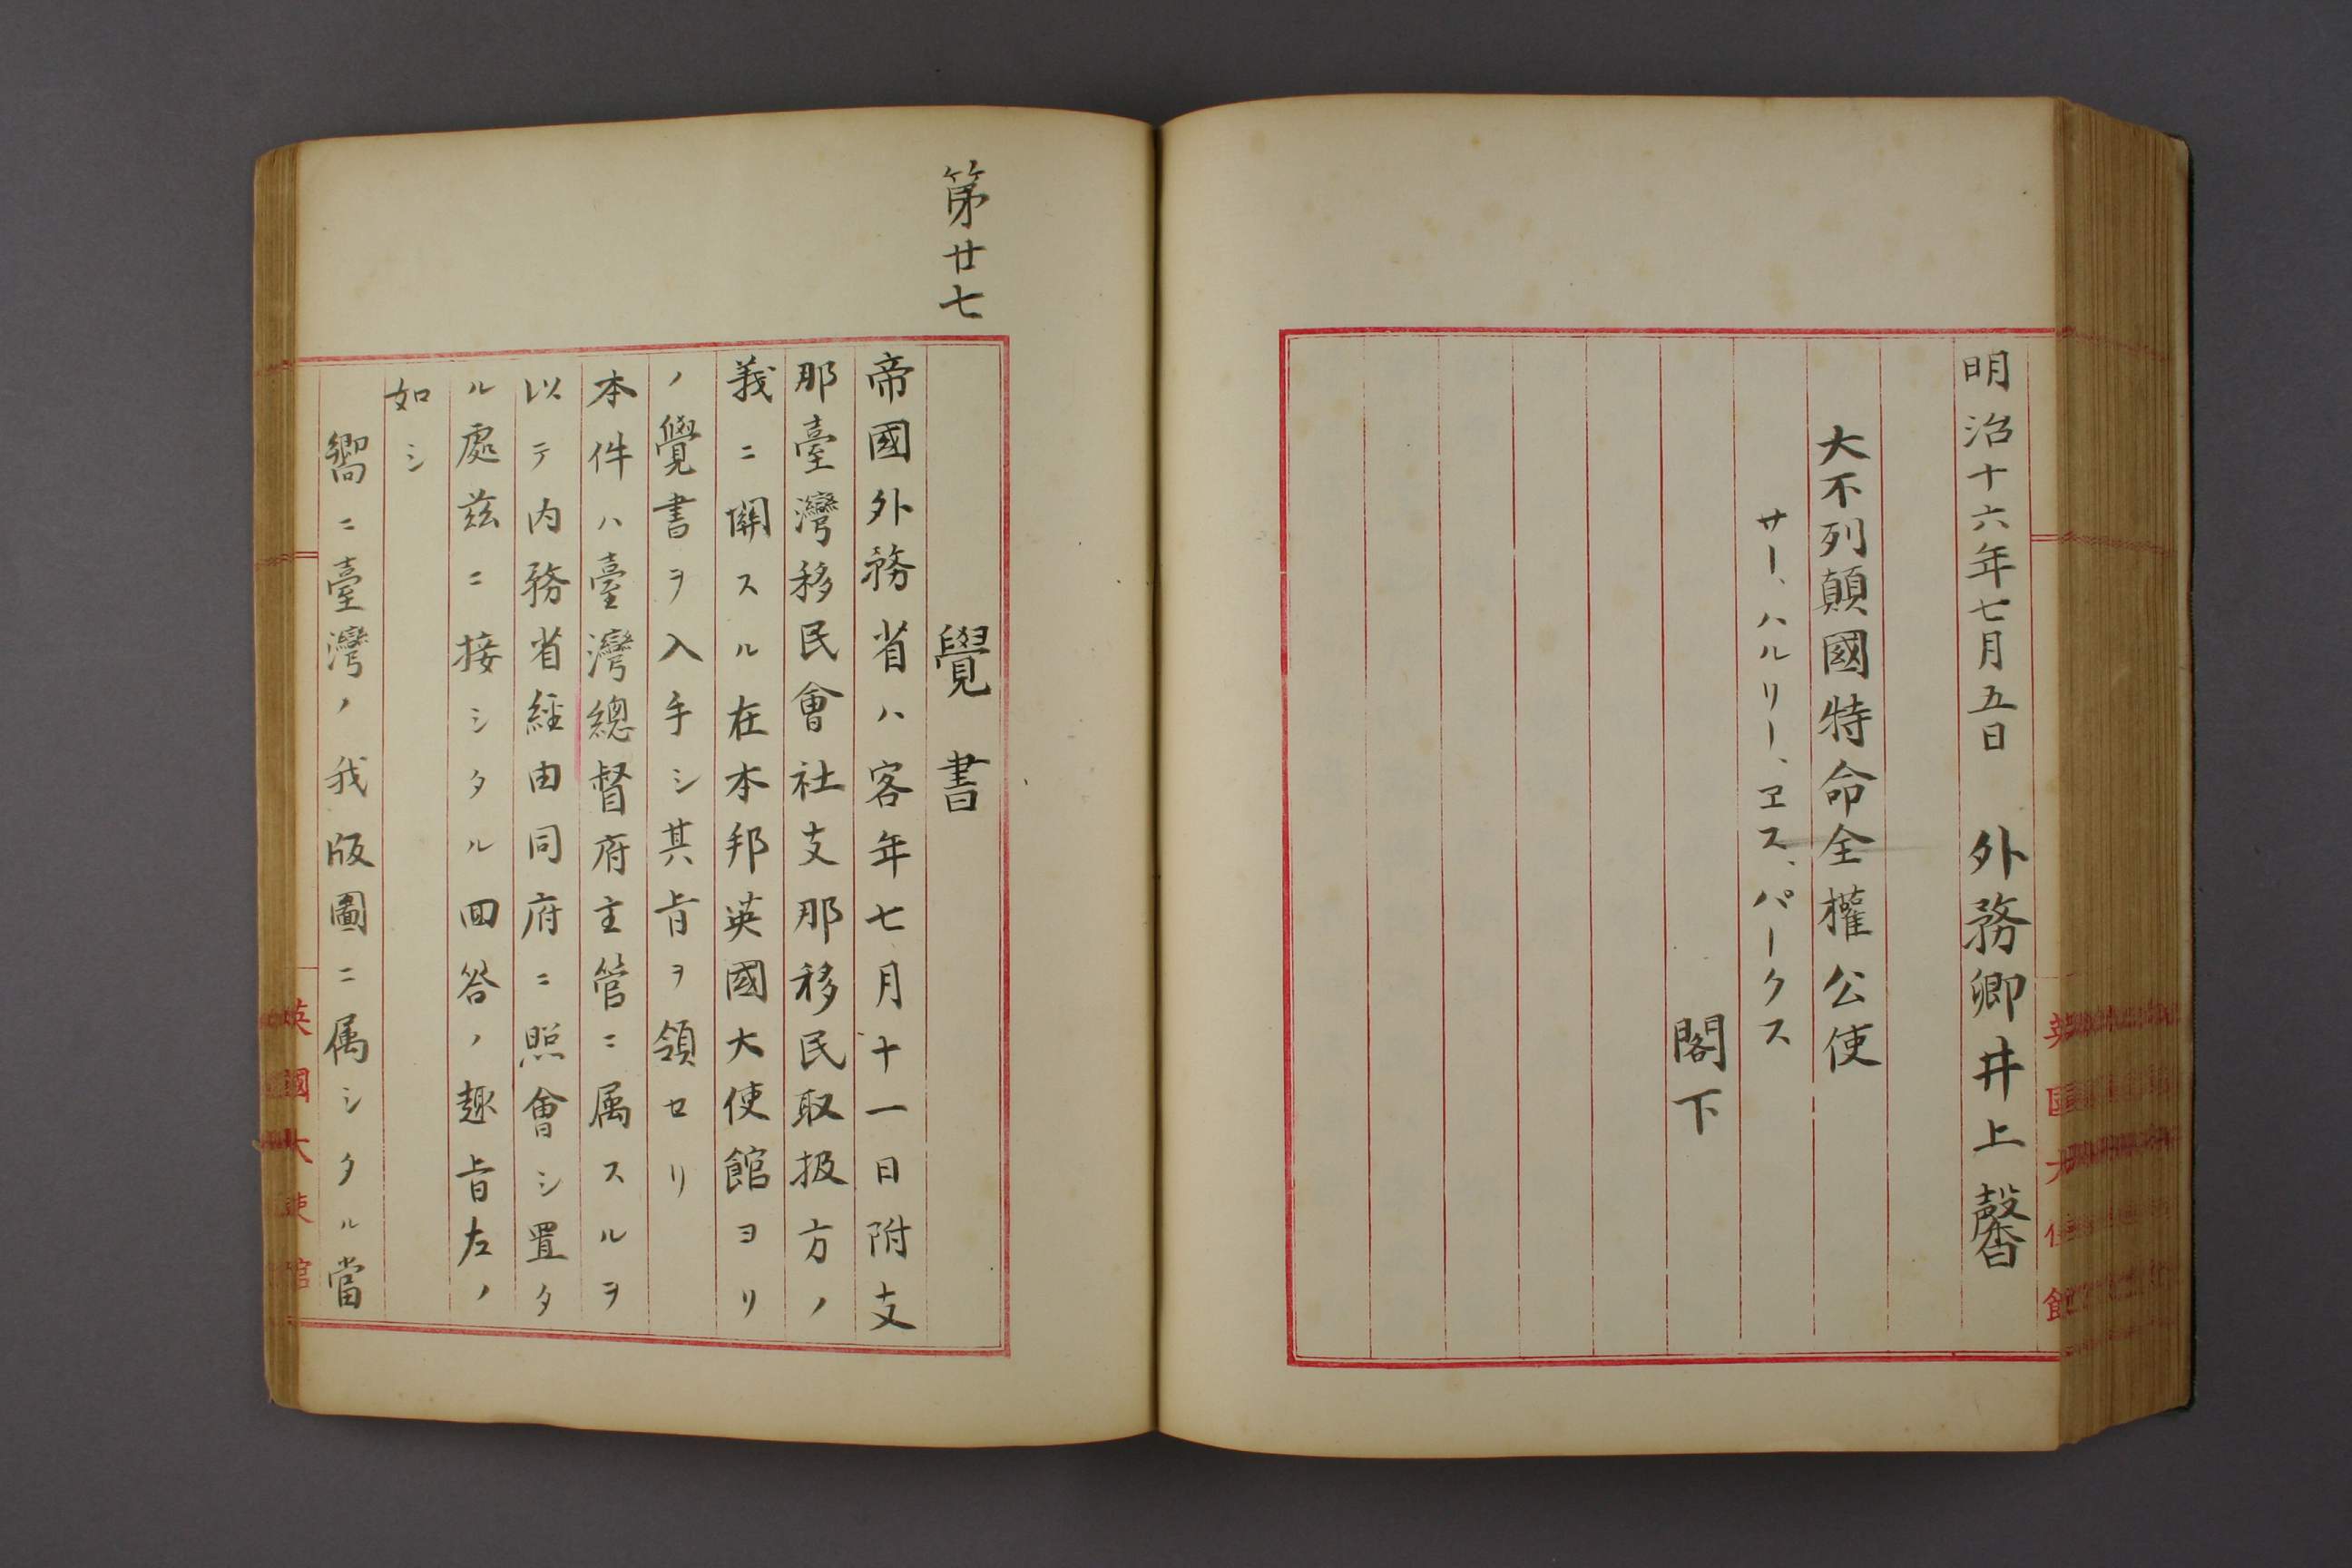 明治十六年七月五日　外務卿井上馨
大不列顛國特命全權公使
サー、ハルリー、ヱス、パークス
閣下
第廿七
覺書
帝國外務省ハ客年七月十一日附支
那臺灣移民會社支那移民取扱方ノ
義ニ關スル在本邦英國大使館ヨリ
ノ覺書ヲ入手シ其旨ヲ領セリ
本件ハ臺灣總督府主管ニ属スルヲ
以テ内務省経由同府ニ照會シ置タ
ル處茲ニ接シタル回答ノ趣旨左ノ
如シ
嚮ニ臺灣ノ我版圖ニ属シタル當
英國大使館